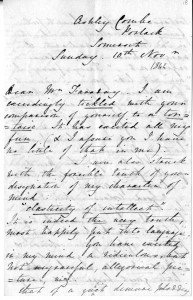 Ashley Combe
Porlock
Somerset
Sunday 10th Novr
1844
Dear Mr Faraday. I am
exceedingly tickled with your
comparison of yourself to a tor=
=toise. It has excited all my
fun (& I assure you I have
no little of that in me).
I am also struck
with the forcible truth of your
designation of my character of
mind
"elasticity of intellect".
It is indeed the very truth,
most happily put into language.
You have excited
in my mind a ridiculous, but
not ungraceful, allegorical pic=
=ture, viz:
that of a quiet demure